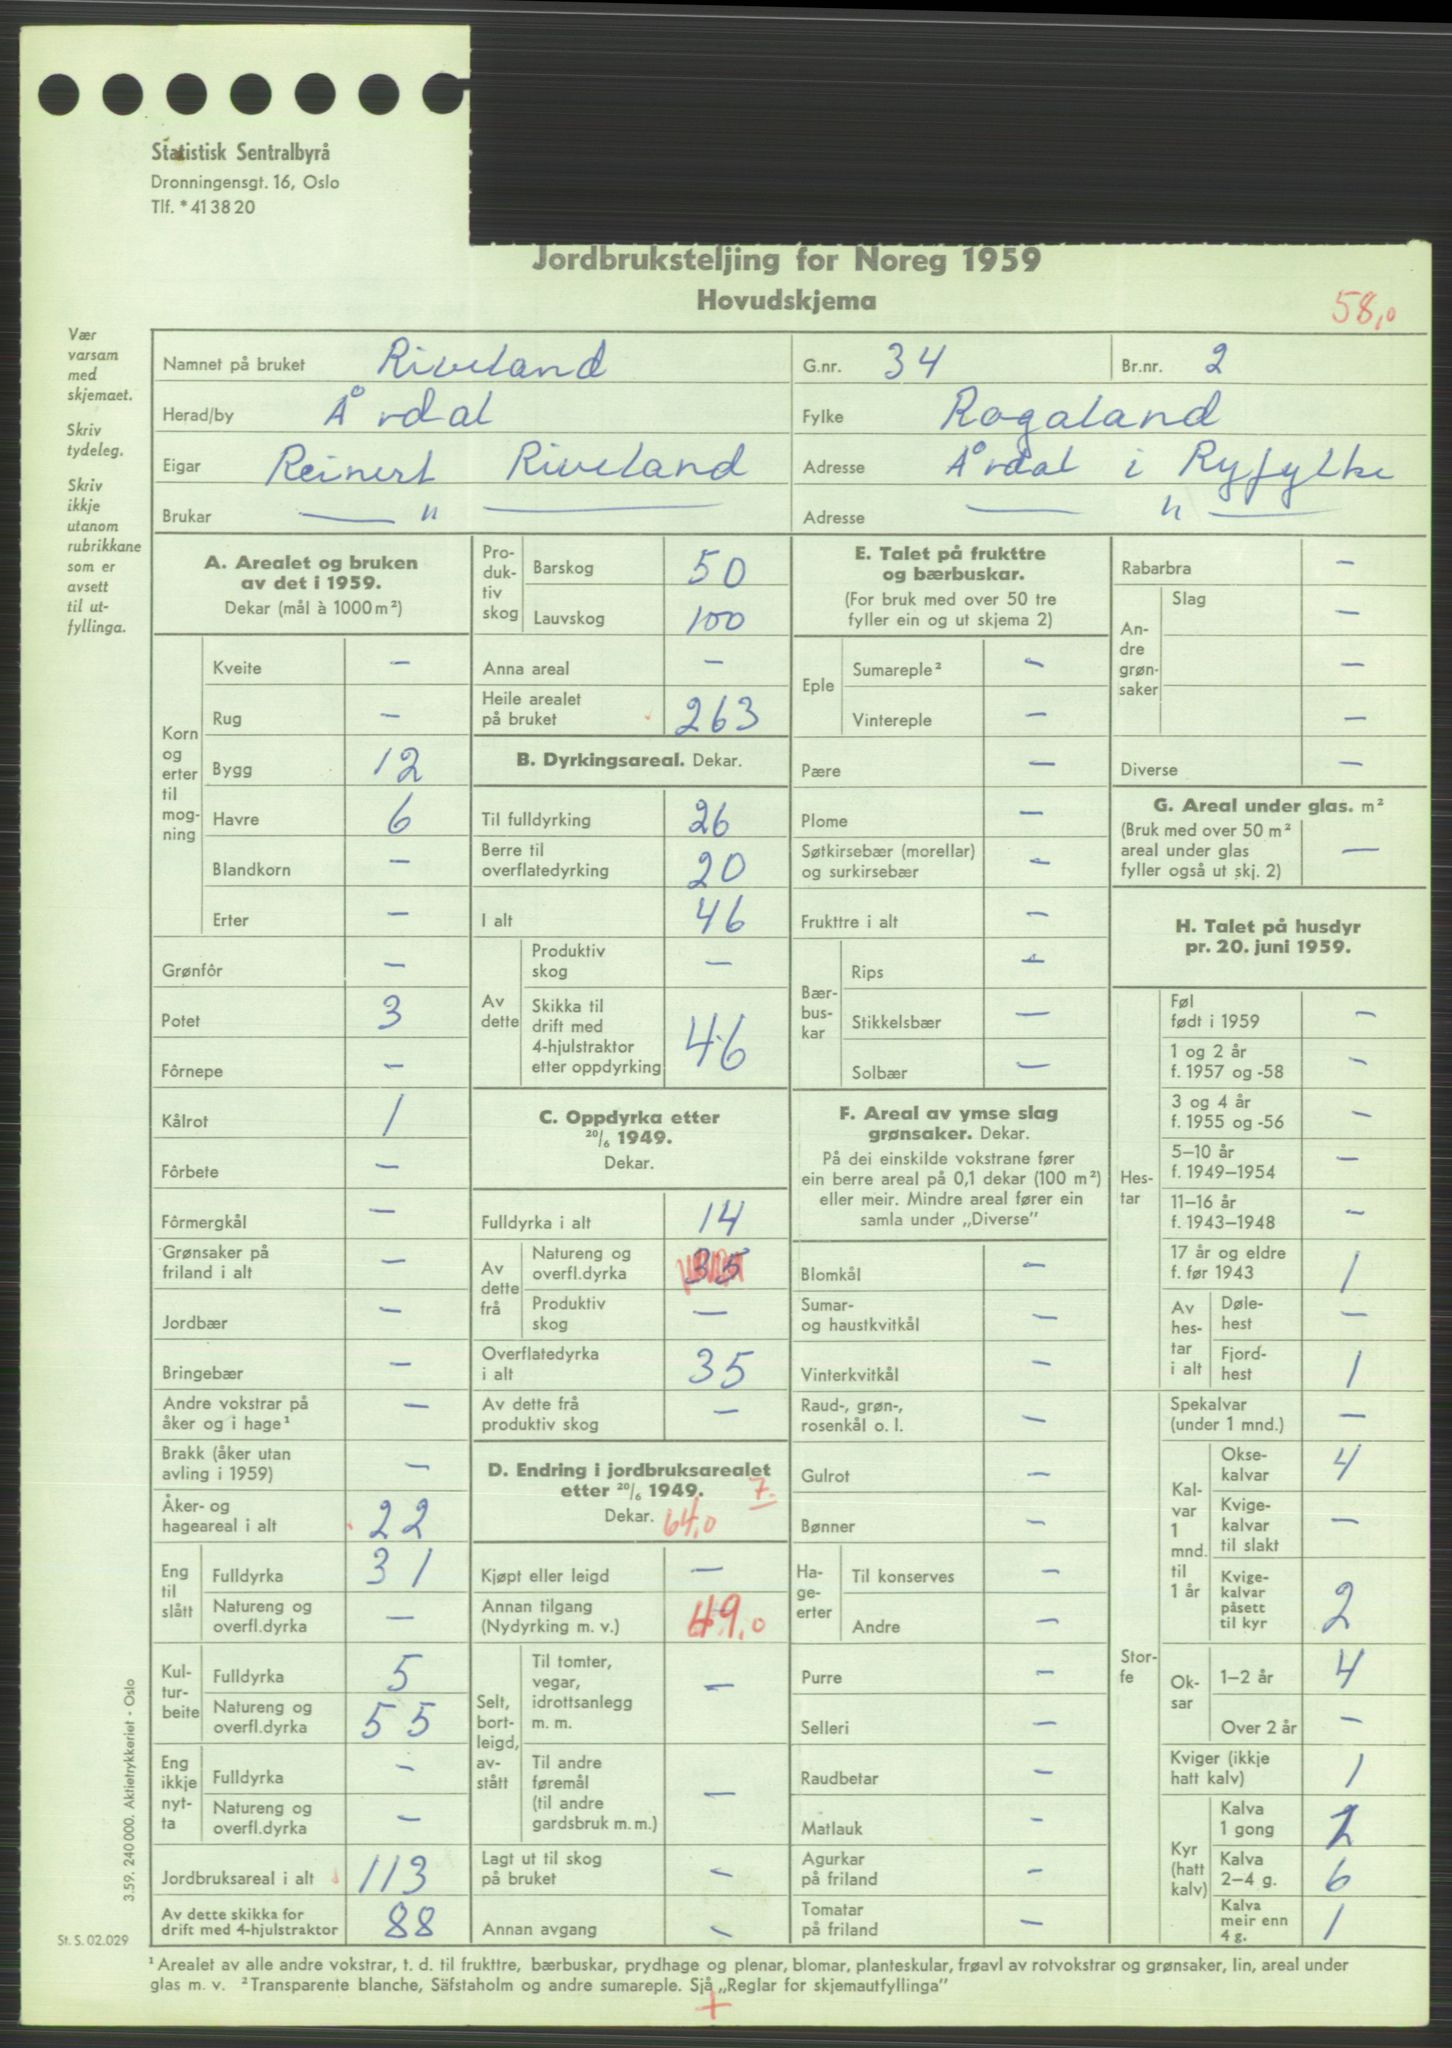 Statistisk Sentralbyrå
Dronningensgt. 16, Oslo
Tlf. *41 38 20
Jordbruksteljing for Noreg 1959
Hovudskjema
58,0
Vær
varsam
med
skjemaet.
Skriv
tydeleg.
Skriv
ikkje
utanom
rubrikkane
som er
avsett
til ut-
fyllinga.
Namnet på bruket Riveland G.nr. 34 Br.nr. 2
Herad/by Årdal Fylke Rogaland
Eigar Reinert Riveland Adresse Årdal i Ryfylke
Brukar — " — Adresse — " —
A. Arealet og bruken
av det i 1959.
Dekar (mål à 1000 m²)
Korn
og
erter
til
mog-
ning
Kveite –
Rug –
Bygg 12
Havre 6
Blandkorn –
Erter –
Grønfôr –
Potet 3
Fôrnepe –
Kålrot 1
Fôrbete –
Fôrmergkål –
Grønsaker på
friland i alt –
Jordbær –
Bringebær –
Andre vokstrar på
åker og i hage¹ –
Brakk (åker utan
avling i 1959) –
Åker- og
hageareal i alt 22
Eng
til
slått
Fulldyrka 31
Natureng og
overfl.dyrka –
Kul-
tur-
beite
Fulldyrka 5
Natureng og
overfl.dyrka 55
Eng
ikkje
nyt-
ta
Fulldyrka –
Natureng og
overfl.dyrka –
Jordbruksareal i alt 113
Av dette skikka for
drift med 4-hjulstraktor 88
Pro-
duk-
tiv
skog
Barskog 50
Lauvskog 100
Anna areal –
Heile arealet
på bruket 263
B. Dyrkingsareal. Dekar.
Til fulldyrking 26
Berre til
overflatedyrking 20
I alt 46
Av
dette
Produktiv
skog –
Skikka til
drift med
4-hjulstraktor
etter oppdyrking 46
C. Oppdyrka etter
20/6 1949.
Dekar.
Fulldyrka i alt 14
Av
dette
frå
Natureng og
overfl.dyrka 35
Produktiv
skog –
Overflatedyrka
i alt 35
Av dette frå
produktiv skog –
D. Endring i jordbruksarealet
etter 20/6 1949. 7.
Dekar. 64,0
Kjøpt eller leigd –
Annan tilgang
(Nydyrking m. v.) 49,0
Selt,
bort-
leigd,
av-
stått
Til tomter,
vegar,
idrottsanlegg
m. m. –
Til andre
føremål
(til andre
gardsbruk m. m.) –
Lagt ut til skog
på bruket –
Annan avgang –
E. Talet på frukttre
og bærbuskar.
(For bruk med over 50 tre
fyller ein og ut skjema 2)
Eple
Sumareple² –
Vintereple –
Pære –
Plome –
Søtkirsebær (morellar)
og surkirsebær –
Frukttre i alt –
Bær-
bus-
kar
Rips –
Stikkelsbær –
Solbær –
F. Areal av ymse slag
grønsaker. Dekar.
På dei einskilde vokstrane fører
ein berre areal på 0,1 dekar (100 m²)
eller meir. Mindre areal fører ein
samla under „Diverse”
Blomkål –
Sumar-
og haustkvitkål –
Vinterkvitkål –
Raud-, grøn-,
rosenkål o. l. –
Gulrot –
Bønner –
Ha-
ge-
erter
Til konserves –
Andre –
Purre –
Selleri –
Raudbetar –
Matlauk –
Agurkar
på friland –
Tomatar
på friland –
Rabarbra –
An-
dre
grøn-
saker
Slag –
–
–
Diverse –
G. Areal under glas. m²
(Bruk med over 50 m²
areal under glas
fyller også ut skj. 2) –
H. Talet på husdyr
pr. 20. juni 1959.
Hes-
tar
Føl
født i 1959 –
1 og 2 år
f. 1957 og -58 –
3 og 4 år
f. 1955 og -56 –
5–10 år
f. 1949–1954 –
11–16 år
f. 1943–1948 –
17 år og eldre
f. før 1943 1
Av
hes-
tar
i alt
Døle-
hest –
Fjord-
hest 1
Stor-
fe
Spekalvar
(under 1 mnd.) –
Kal-
var
1
mnd.
til
1 år
Okse-
kalvar 4
Kvige-
kalvar
til slakt –
Kvige-
kalvar
påsett
til kyr 2
Ok-
sar
1–2 år 4
Over 2 år –
Kviger (ikkje
hatt kalv) 1
Kyr
(hatt
kalv)
Kalva
1 gong
Kalva
2–4 g. 6
Kalva
meir enn
4 g. 1
3.59. 240 000. Aktietrykkeriet - Oslo
St. S. 02.029
¹ Arealet av alle andre vokstrar, t. d. til frukttre, bærbuskar, prydhage og plenar, blomar, planteskular, frøavl av rotvokstrar og grønsaker, lin, areal under
glas m. v. ² Transparente blanche, Säfstaholm og andre sumareple. Sjå „Reglar for skjemautfyllinga”
+